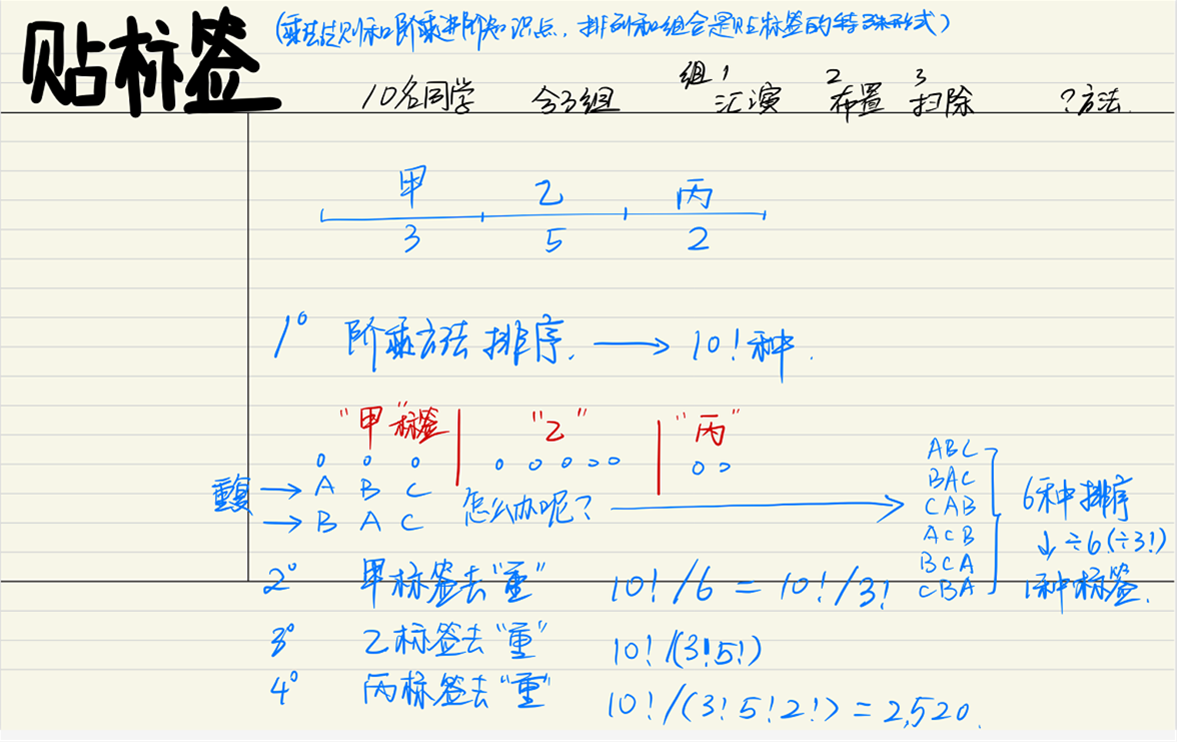 贴标签 (乘法法则和阶乘进阶知识点，排列和组合是贴标签的特殊形式)
10名同学 分3组 组 1 汇演 2 布置 3 扫除 ?方法.
甲 乙 丙
3 5 2
1° 阶乘方法 排序. → 10!种.
"甲"标签 "乙" "丙"
重复 → A B C
→ B A C 怎么办呢?
ABC
BAC
CAB
ACB
BCA
CBA
6种排序
↓÷6(÷3!)
1种标签.
2° 甲标签去"重" 10!/6 = 10!/3!
3° 乙标签去"重" 10!/(3!5!)
4° 丙标签去"重" 10!/(3!5!2!) = 2,520.